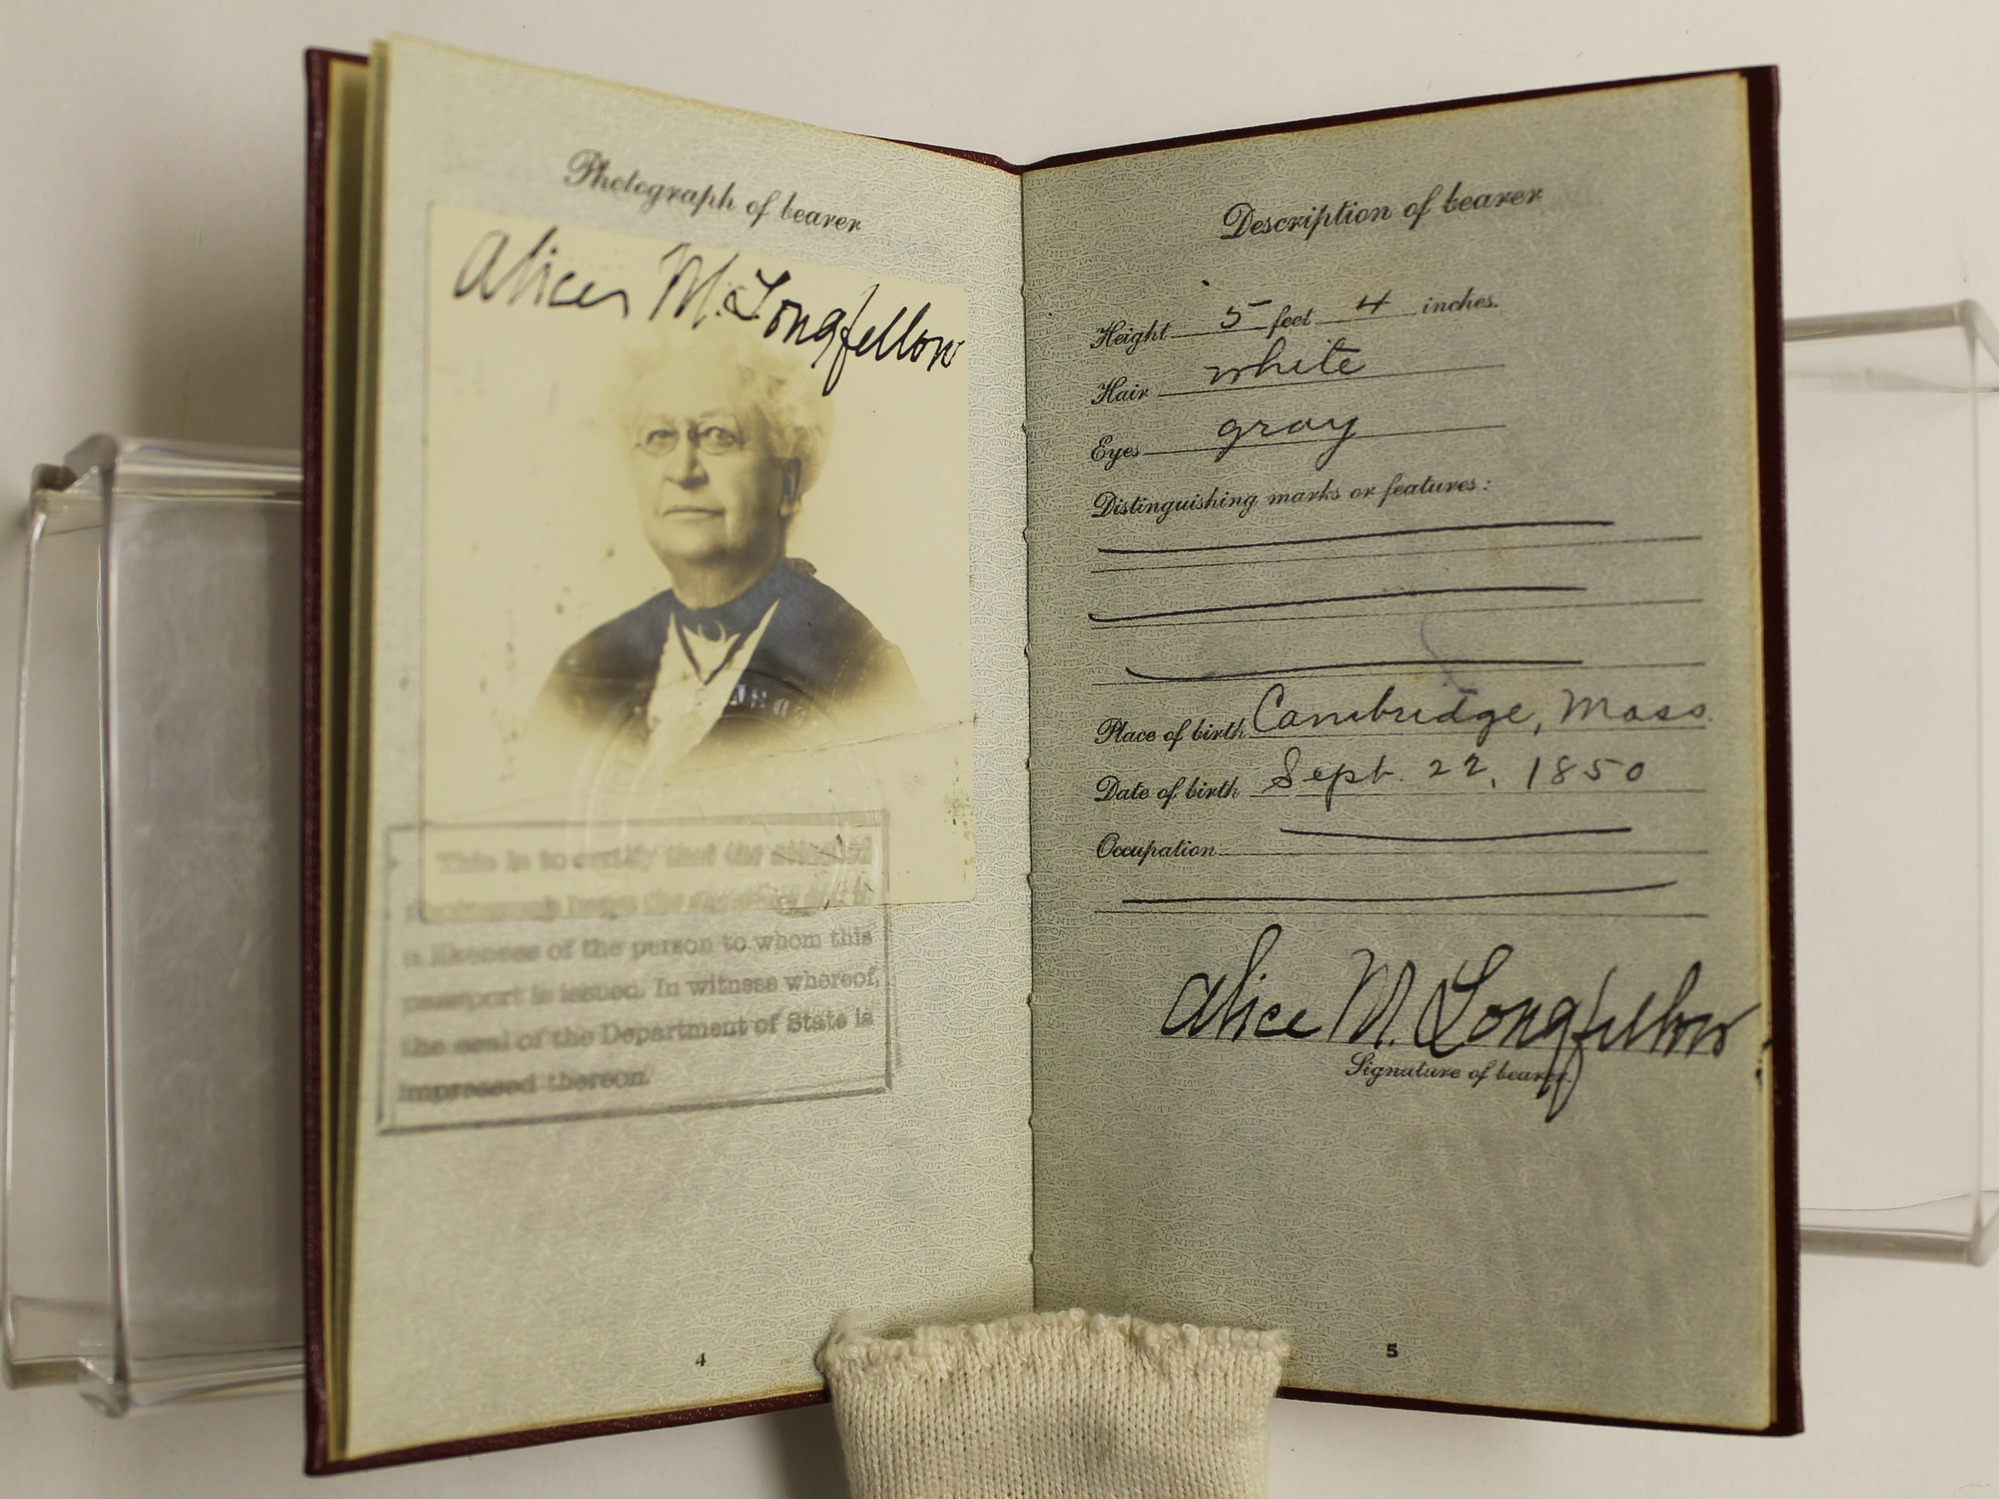 Photograph of bearer
Alice M. Longfellow
This is to certify that the attached
photograph bears the
a likeness of the person to whom this
passport is issued. In witness whereof,
the seal of the Department of State is
impressed thereon.
4
Description of bearer
Height 5 feet 4 inches.
Hair white
Eyes gray
Distinguishing marks or features:
Place of birth Cambridge, Mass.
Date of birth Sept. 22, 1850
Occupation
Alice M. Longfellow
Signature of bearer.
5